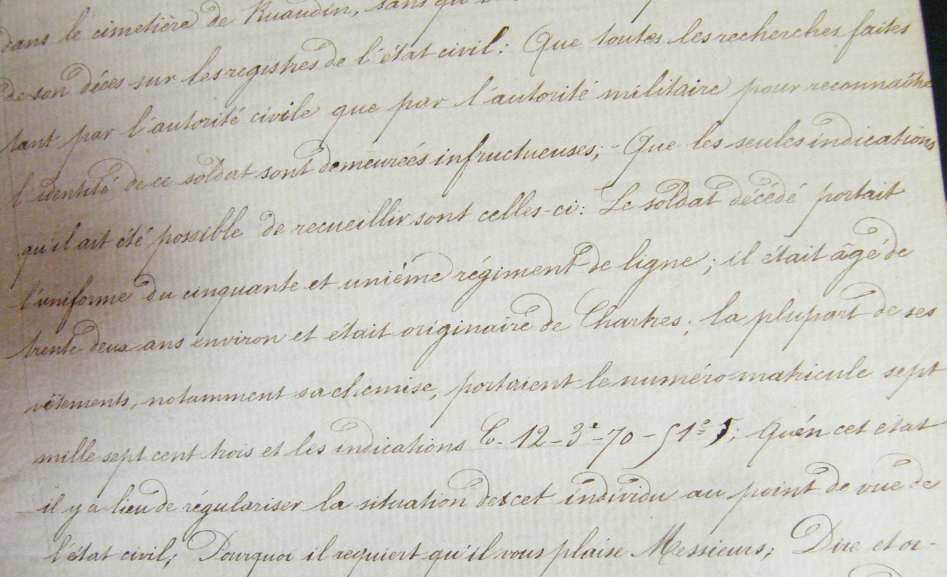 dans le cimetière de Ruaudin, sans qu'
de son décès sur les registres de l'état civil: Que toutes les recherches faites
tant par l'autorité civile que par l'autorité militaire pour reconnaître
l'identité de ce soldat sont demeurées infructueuses; - Que les seules indications
qu'il ait été possible de recueillir sont celles-ci: Le soldat décédé portait
l'uniforme du cinquante et unième régiment de ligne; il était âgé de
trente deux ans environ et etait originaire de Chartres; la plupart de ses
vêtements, notamment sa chemise, portaient le numéro matricule sept
mille sept cent trois et les indications C. 12-3e-70-51e 5; Qu'en cet état
il y a lieu de régulariser la situation de cet individu au point de vue de
l'état civil; Pourquoi il requiert qu'il vous plaise Messieurs; Dire et or-